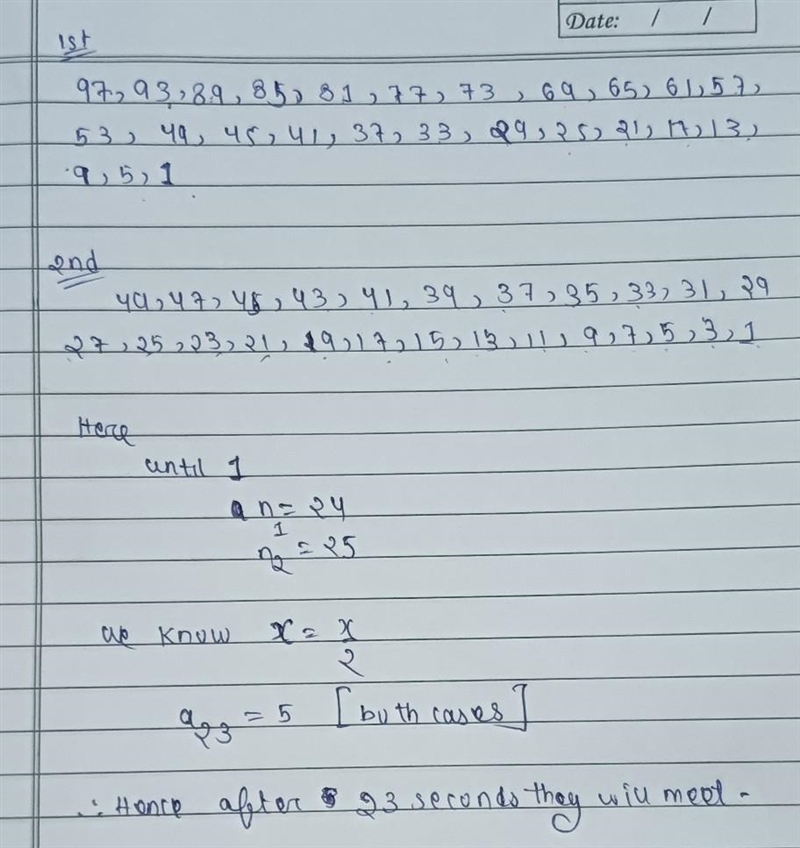 Date: / /
1st
97, 93, 89, 85, 81, 77, 73, 69, 65, 61, 57,
53, 49, 45, 41, 37, 33, 29, 25, 21, 17, 13,
9, 5, 1
2nd
49, 47, 45, 43, 41, 39, 37, 35, 33, 31, 29
27, 25, 23, 21, 19, 17, 15, 13, 11, 9, 7, 5, 3, 1
Here
until 1
n₁ = 24
n₂ = 25
we know x = x/2
a₂₃ = 5 [both cases]
∴ Hence after 23 seconds they will meet.